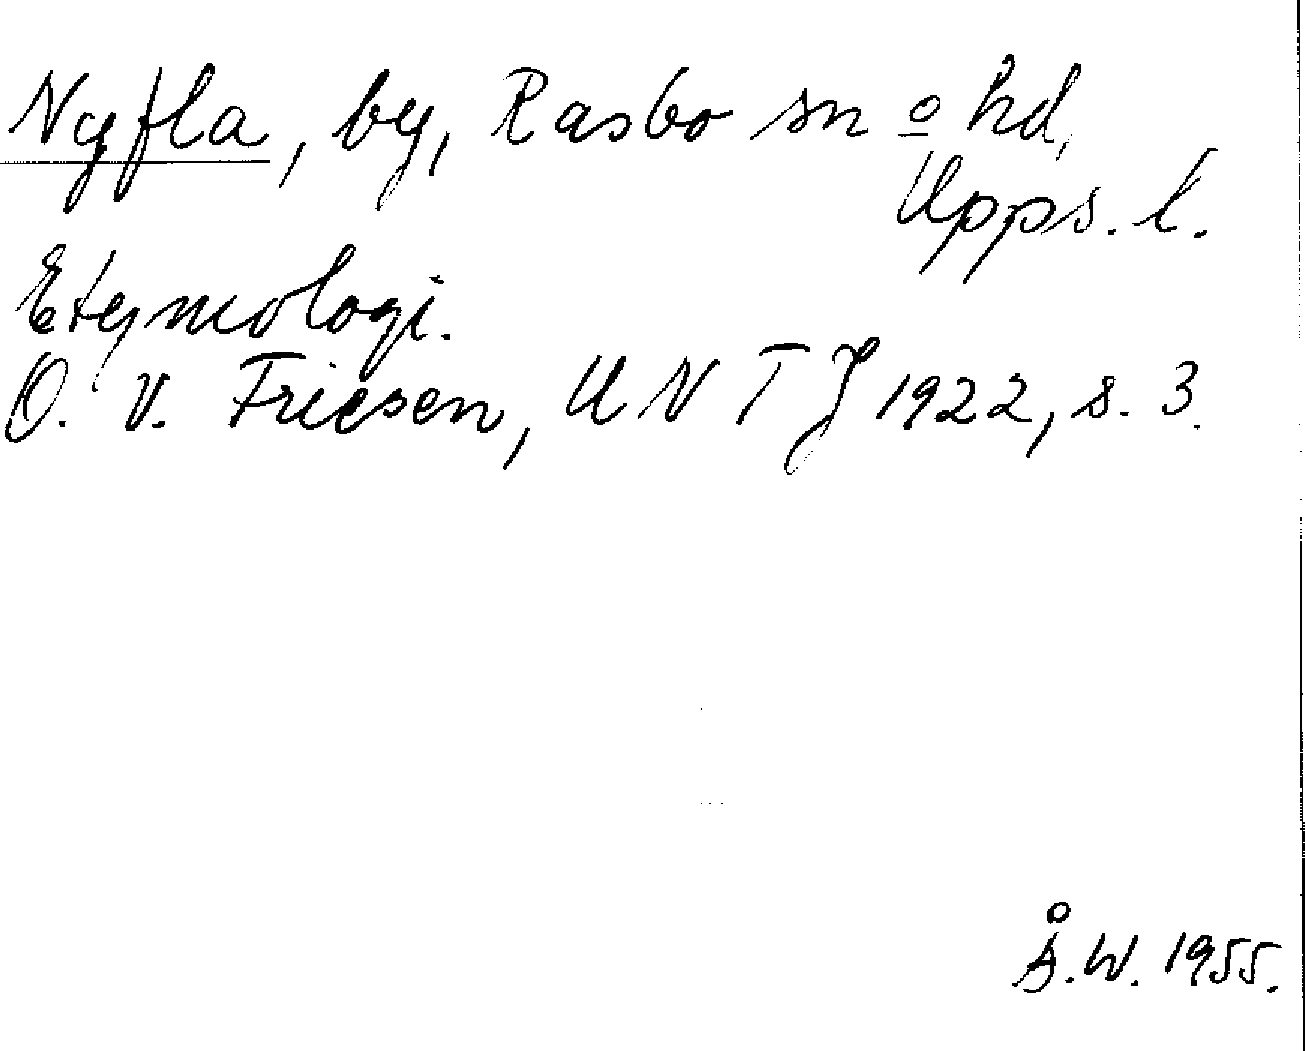 Nyfla, by, Rasbo sn o hd,
Upps. l.
Etymologi.
O. v. Friesen, UNTJ 1922, s. 3.
Å.W. 1955.